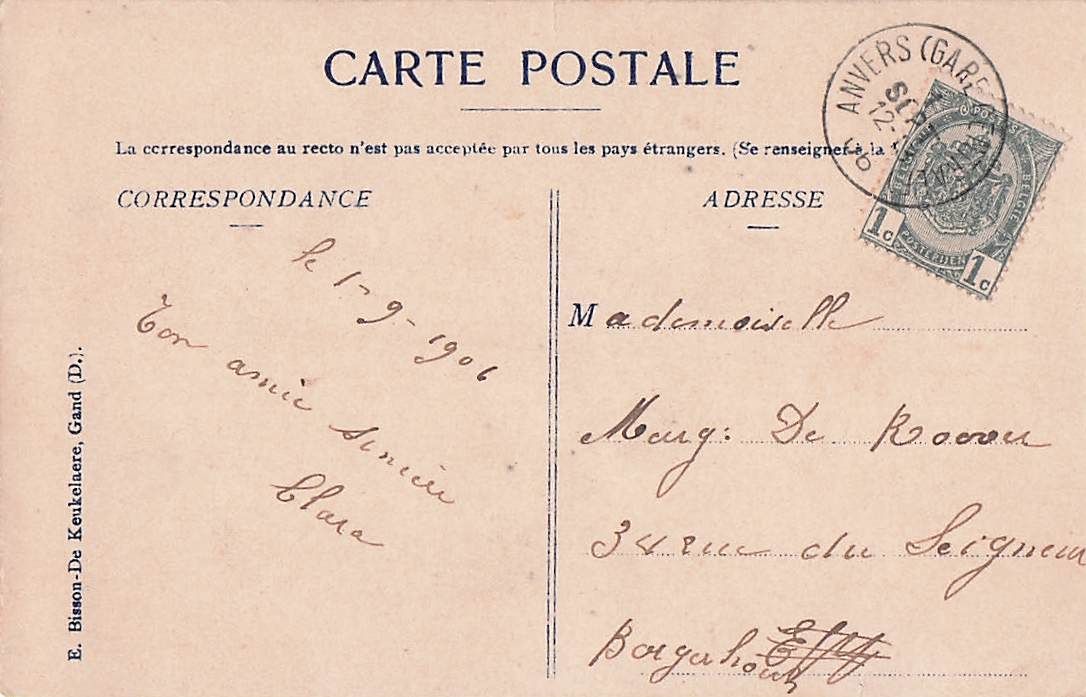 CARTE POSTALE
La correspondance au recto n'est pas acceptée par tous les pays étrangers. (Se renseigner à la
CORRESPONDANCE
le 1-9-1906
Ton amie sincère
Clara
E. Bisson-De Keukelaere, Gand (D.).
ADRESSE
Mademoiselle
Marg: De Roover
34 rue du Seigneur
Borgerhout
ANVERS (GARE
1c
1c